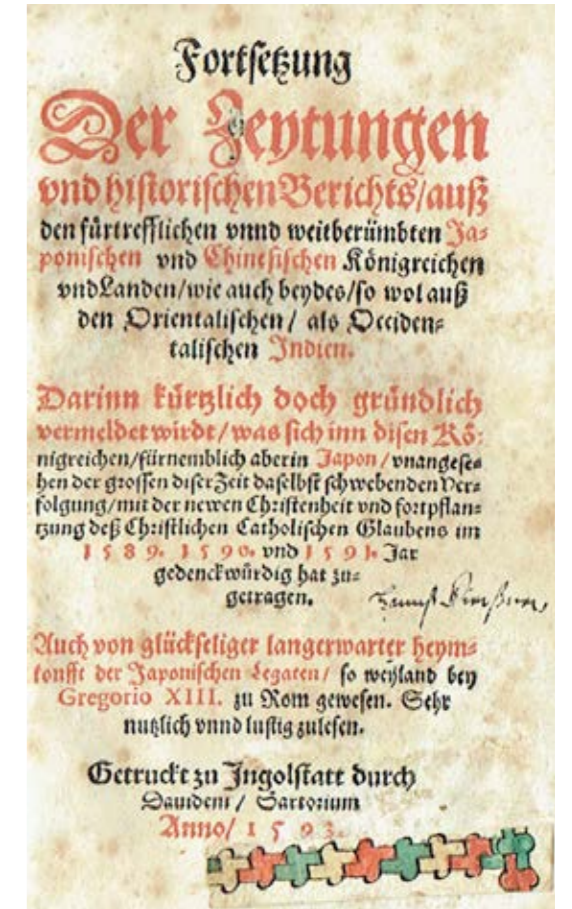 Fortsetzung
Der Zeytungen
vnd historischen Berichts/auß
den fürtrefflichen vnnd weitberümbten Ja⸗
ponischen vnd Chinesischen Königreichen
vnd Landen/wie auch beydes/so wol auß
den Orientalischen/ als Occiden⸗
talischen Indien.
Darinn kürtzlich doch gründlich
vermeldet wirdt/was sich inn disen Kö⸗
nigreichen/fürnemblich aber in Japon/vnangese⸗
hen der grossen diser Zeit daselbst schwebenden Ver⸗
folgung/mit der newen Christenheit vnd fortpflan⸗
tzung deß Christlichen Catholischen Glaubens im
1589. 1590. vnd 1591. Jar
gedenckwürdig hat zu⸗
getragen.
Auch von glückseliger langerwarter heym⸗
konfft der Japonischen Legaten/ so weyland bey
Gregorio XIII. zu Rom gewesen. Sehr
nutzlich vnnd lustig zulesen.
Getruckt zu Ingolstatt durch
Dauidem / Sartorium
Anno/ 1593.